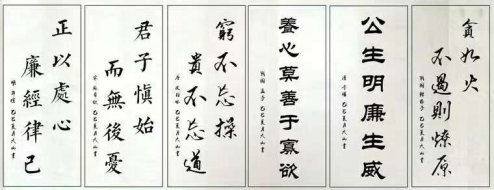 貪如火
不遏則燎原
公生明廉生威
養心莫善于寡欲
戰國 孟子
窮不忘操
貴不忘道
君子慎始
而無後憂
正以處心
廉經律己